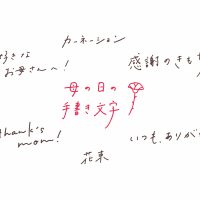 カーネーション
好きな
お母さんへ！
感謝のきもち
母の日の
手書き文字
thank's
mom!
いつも、ありが
花束